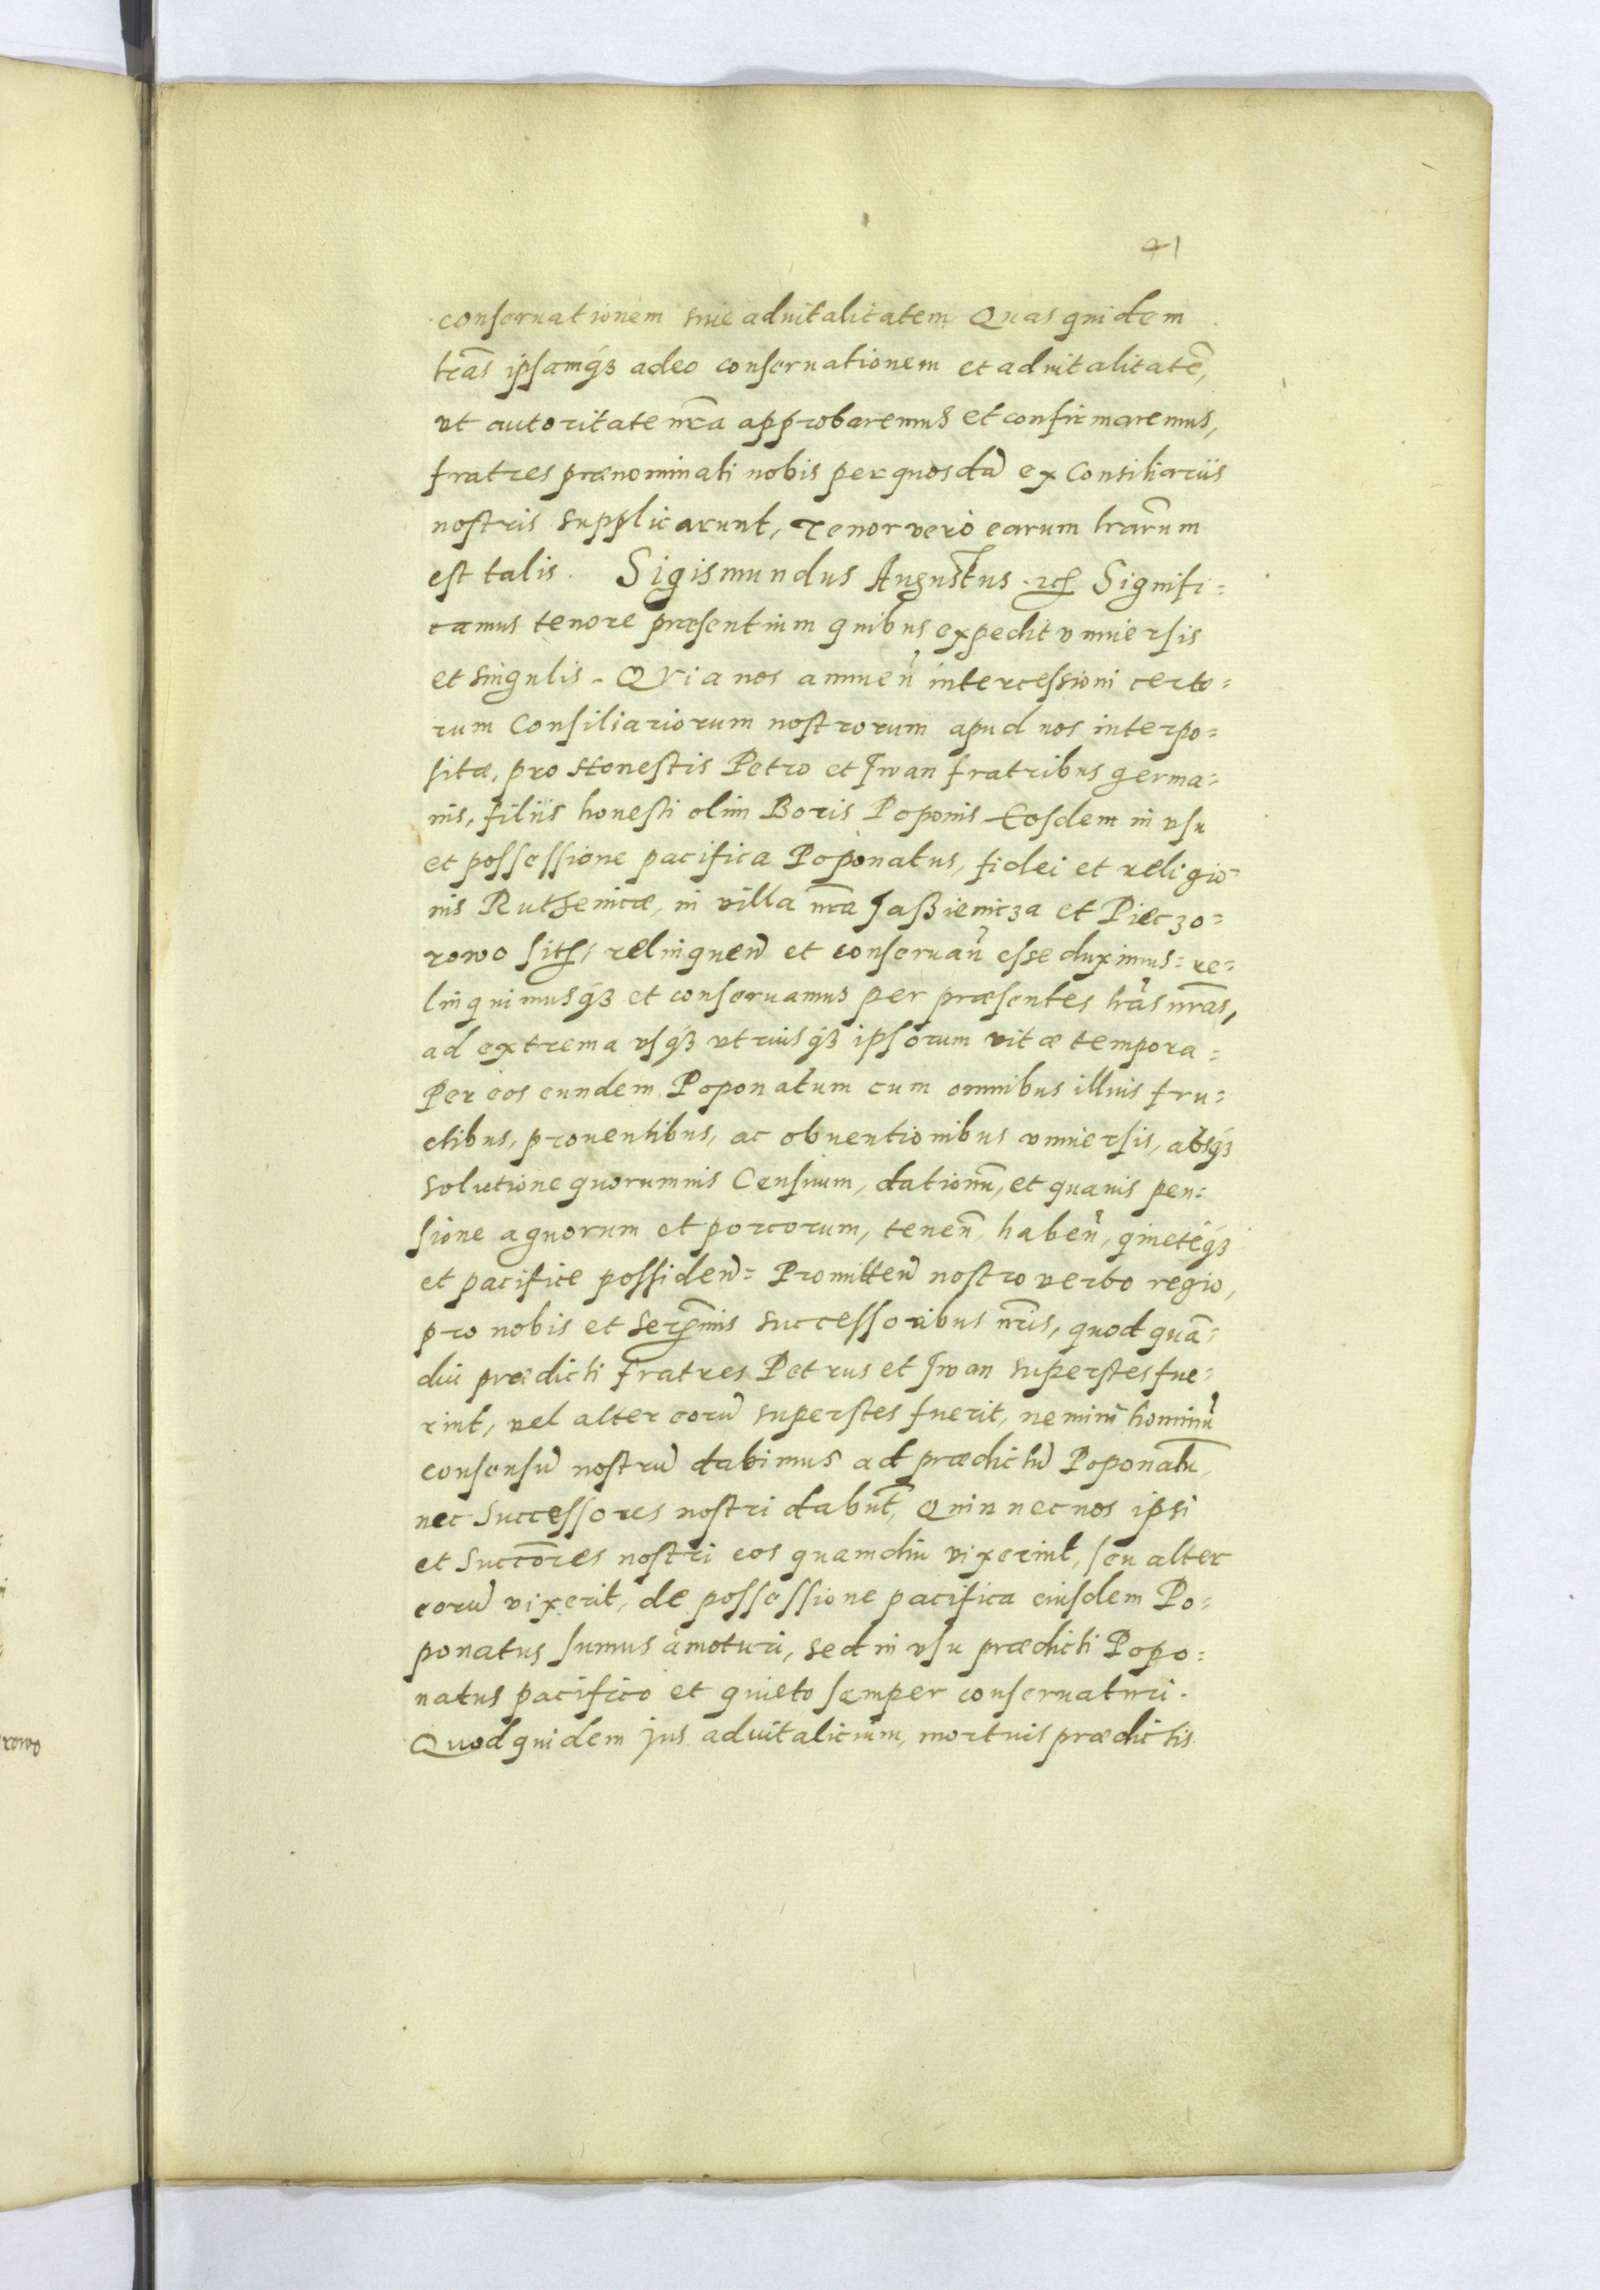 41
conseruationem siue aduitalitatem Quas quidem
lr̃as ipsamq́ꝫ adeo conseruationem et aduitalitatẽ,
vt autoritate nr̃a approbaremus et confirmaremus,
fratres prænominati nobis per quosdã ex Consiliariis
nostris supplicarunt, Tenor verò earum lr̃arum
est talis. Sigismundus Augustus ꝛcꝭ Signifi=
camus tenore præsentium quibus expedit vniuersis
et singulis. QVia nos annueñ intercessioni certo=
rum Consiliariorum nostrorum apud nos interpo=
sitæ, pro Honestis Petro et Jwan fratribus germa=
nis, filiis honesti olim Boris Poponis Eosdem in vsu
et possessione pacifica Poponatus, fidei et religio=
nis Ruthenicæ, in villa nr̃a Jaßienicza et Pieczo=
rowo sitꝭ, relinqueñ et conseruañ esse duximus= re=
linquimusq́ꝫ et conseruamus per præsentes lr̃as nr̃as,
ad extrema vsq́ꝫ vtriusq́ꝫ ipsorum vitæ tempora=
Per eos eundem Poponatum cum omnibus illius fru=
ctibus, prouentibus, ac obuentionibus vniuersis, absq́ꝫ
solutione quorumuis Censuum, dationũ, et quauis pen=
sione agnorum et porcorum, teneñ, habeñ, quieteq́ꝫ
et pacifice possideñ= Promitteñ nostro verbo regio,
pro nobis et Serẽmis successoribus nr̃is, quod quã=
diu prædicti fratres Petrus et Jwan superstes fue=
rint, vel alter eorũ superstes fuerit, nemini hominũ
consensũ nostrũ dabimus ad prædictũ Poponatũ,
nec Successores nostri dabũt, Quin nec nos ipsi
et Succõres nostri eos quamdiu vixerint, seu alter
eorũ vixerit, de possessione pacifica eiusdem Po=
ponatus sumus amoturi, sed in vsu prædicti Popo=
natus pacifico et quieto semper conseruaturi.
Quod quidem jus aduitalicium, mortuis prædictis
rowo